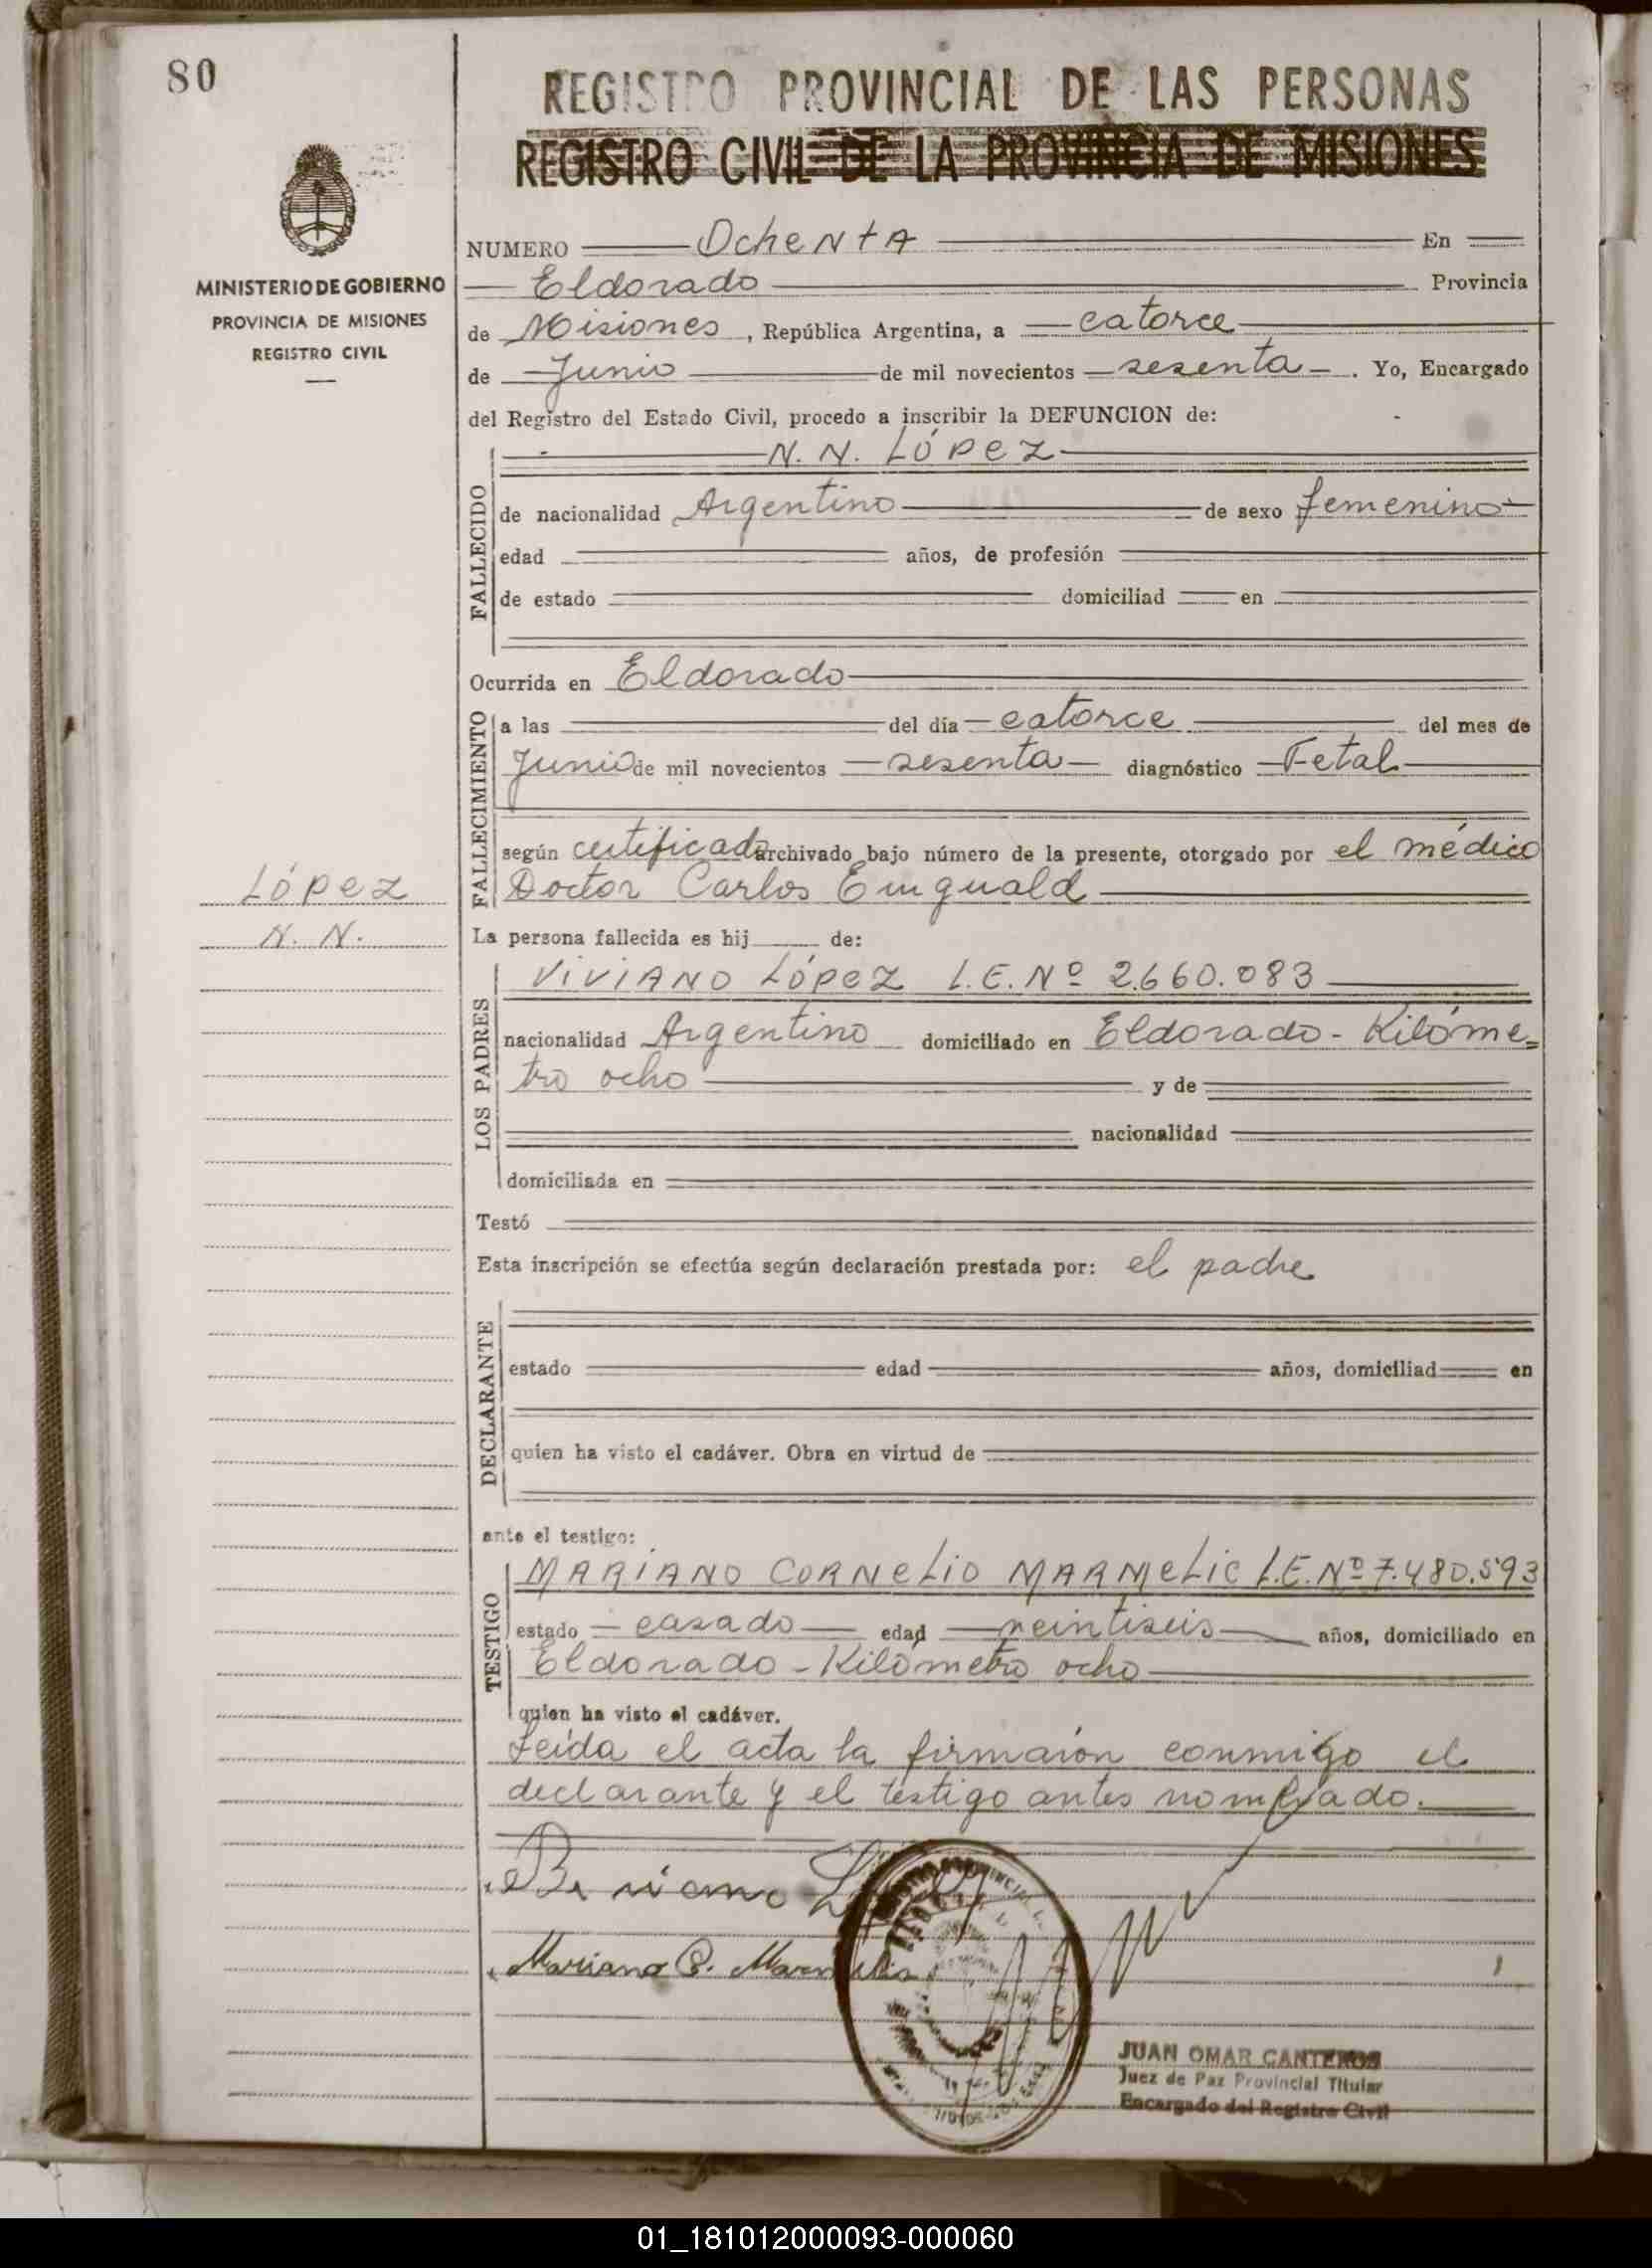 80
REGISTRO PROVINCIAL DE LAS PERSONAS
REGISTRO CIVIL DE LA PROVINCIA DE MISIONES
MINISTERIO DE GOBIERNO
PROVINCIA DE MISIONES
REGISTRO CIVIL
NUMERO Ochenta En
Eldorado Provincia
de Misiones, República Argentina, a catorce
de Junio de mil novecientos sesenta. Yo, Encargado
del Registro del Estado Civil, procedo a inscribir la DEFUNCION de:
N. N. López
FALLECIDO
de nacionalidad Argentino de sexo femenino
edad años, de profesión
de estado domiciliad en
Ocurrida en Eldorado
FALLECIMIENTO
a las del día catorce del mes de
Junio de mil novecientos sesenta diagnóstico Fetal
según certificado archivado bajo número de la presente, otorgado por el médico
Doctor Carlos
López
N. N.
La persona fallecida es hij de:
LOS PADRES
VIVIANO López L.E. Nº 2.660.083
nacionalidad Argentino domiciliado en Eldorado - Kilóme=
tro ocho y de
nacionalidad
domiciliada en
Testó
Esta inscripción se efectúa según declaración prestada por: el padre
DECLARANTE
estado edad años, domiciliad en
quien ha visto el cadáver. Obra en virtud de
ante el testigo:
TESTIGO
MARIANO CORNELIO MARMELIC L.E. Nº 7.480.593
estado casado edad veintiseis años, domiciliado en
Eldorado - Kilómetro ocho
quien ha visto el cadáver.
Leída el acta la firmaron conmigo el
declarante y el testigo antes nombrado.
Mariano C. Marmelic
JUAN OMAR CANTEROS
Juez de Paz Provincial Titular
Encargado del Registro Civil
01_181012000093-000060